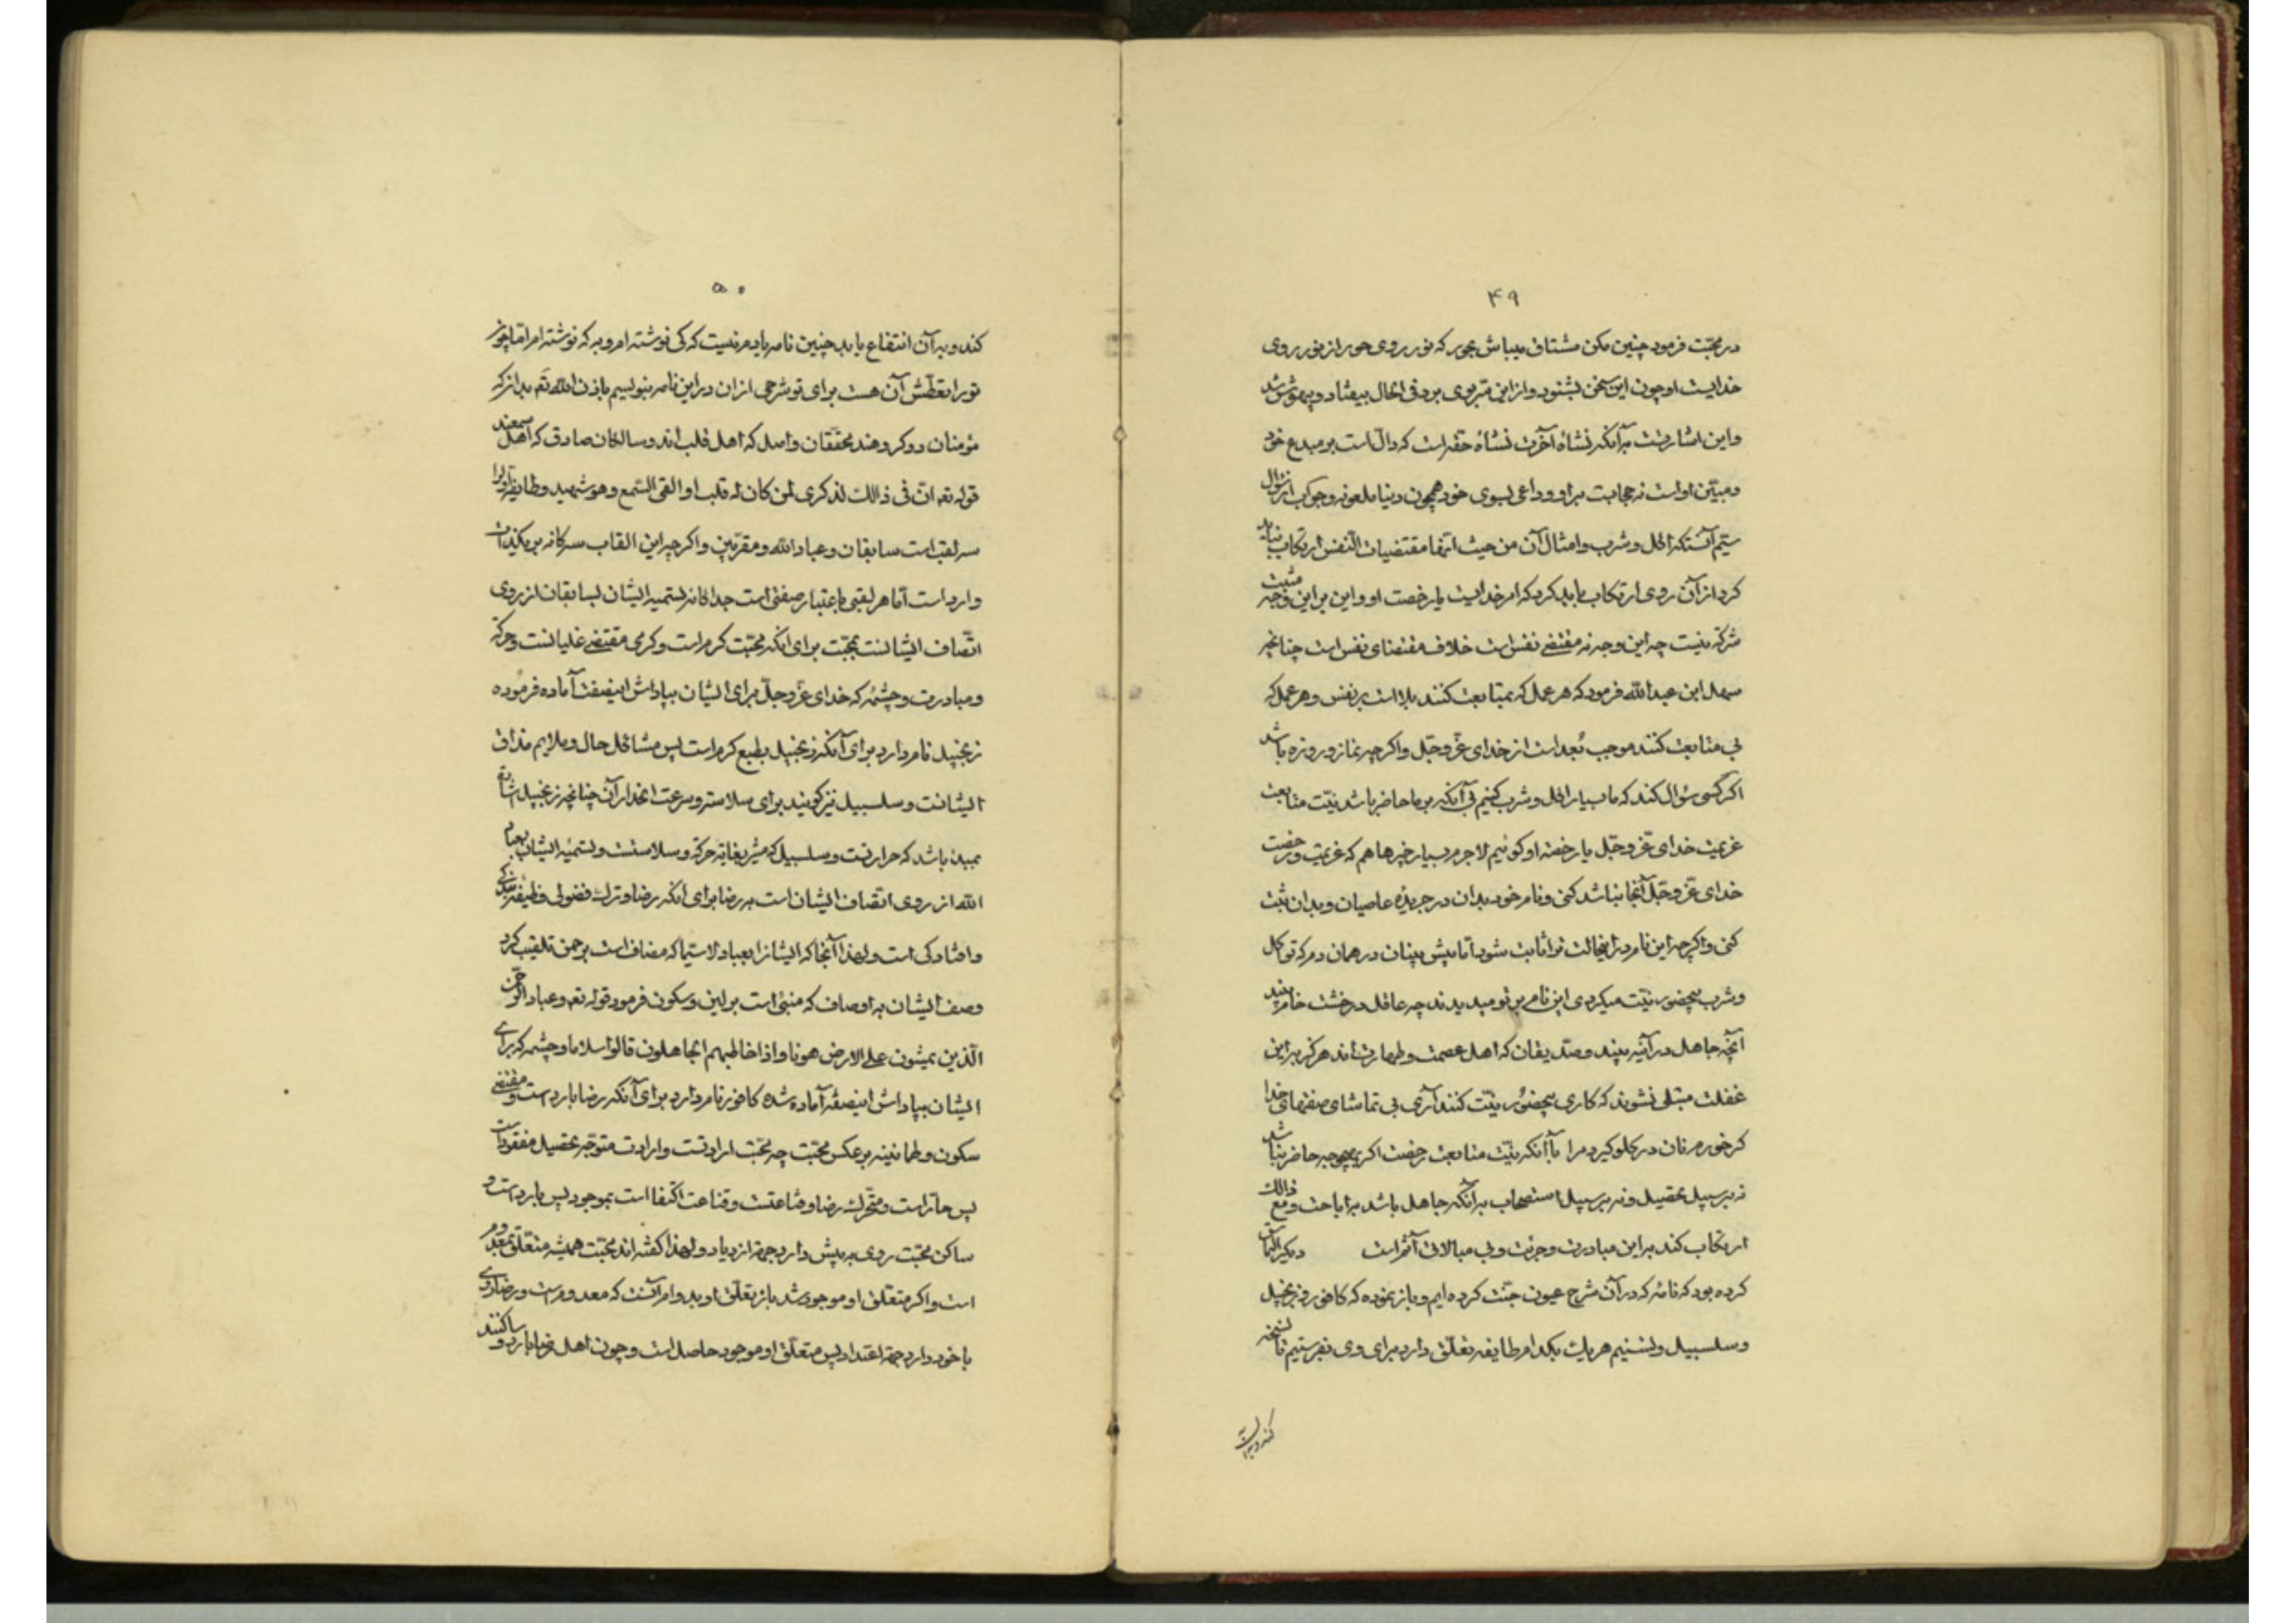 ۴۹
در محبّت فرمود چنین مکن مشتاق میباش بحور که نور روی حور از نور روی
خدایست او چون این سخن بشنود و از این متر بوی برد فی الحال بیفتاد و بیهوش شد
و این اشارتست به آنکه نشاهٔ آخرت نشاهٔ حقه است که دالّ است بر مبدع خود
و مبیّن او است نه حجابست بر او و داعی بسوی خود همچون دنیا ملعونه و جواب از سؤال
سیّم آنستکه اکل و شرب و امثال آن من حیث انّها مقتضیات النّفس ارتکاب نباید
کرد از آن روی ارتکاب باید کرد که امر خدایست یا رخصت او و این بر این وجه مثبت
شرکه نیست چه این وجه نه مقتضی نفس است خلاف مقتضای نفس است چنانچه
سهل ابن عبدالله فرمود که هر عمل که بمتابعت کنند بلا است بر نفس و هر عمل که
بی متابعت کنند موجب بُعد است از خدای عزّ و جلّ و اکر چه نماز و روزه باشد
اکر کسی سؤال کند که ما بسیار اکل و شرب کنیم بی آنکه بر ما حاضر باشد نیّت متابعت
عزیمت خدای عزّ و جلّ یا رخصة او کوئیم لاجرم بسیار خبرها هم که عزیمت و رخصت
خدای عزّ و جلّ آنجا نباشد کنی و نام خود بدان در جریدهٔ عاصیان و بدان ثبت
کنی و اکر چه این نام در اینحالت تو را ثابت شود امّا پیش بینان در همان دم که تو اکل
و شرب بیحضور نیّت میکردی این نام بر تو میدیدند چه عاقل در خشت خام بیند
آنچه جاهل در آئینه بیند و صدّیقان که اهل عصمت و طهارت اند هرکز به این
غفلت مبتلی نشوند که کاری بیحضور نیّت کنند آری بی تماشای صنعهای خدا
کر خورم نان در کلو کیرد مرا با آنکه نیّت متابعت رخصت اکر بهیچوجه حاضر نباشد
نه بر سبیل تحصیل و نه بر سبیل استصحاب به آنکه جاهل باشد به اباحت و مع ذالک
ارتکاب کند به این مبادرت و جرئت و بی مبالاتی آثم است دیکر التماس
کرده بود که نامهٔ که در آن شرح عیون جنّت کرده ایم و باز نموده که کافور و زنجبیل
و سلسبیل و تسنیم هر یک بکدام طایفه تعلّق دارد برای وی بفرستیم تا نسخه
کند و به آن

۵۰
کند و به آن انتفاع یابد چنین نامه یادم نیست که کی نوشته ام و به که نوشته ام امّا چون
تو را تعطّش آن هست برای تو شرحی از ان در این نامه بنویسیم باذن الله تَع بدانکه
مؤمنان دو کروهند محققان واصل که اهل قلب اند و سالکان صادق که اهل سمعند
قوله تعه انّ فی ذالک لذکری لمن کان له قلب او القی السّمع و هو شهید و طایفه اولی را
سه لقب است سابقان و عباد الله و مقرّبین و اکر چه این القاب سه کانه بر یکذات
وارد است امّا هر لقبی باعتبار صفتی است جداکانه تسمیه ایشان بسابقان از روی
اتّصاف ایشانست بمحبّت برای انکه محبّت کرم است و کرمی مقتضی غلیانست و حرکة
و مبادرت و چشمهٔ که خدای عزّ و جلّ برای ایشان بپاداش اینصفت آماده فرموده
زنجبیل نام دارد برای آنکه زنجبیل بطبع کرم است پس مشاکل حال و ملایم مذاق
ایشانست و سلسبیل نیز کویند برای سلاسة و سرعت انحدار آن چنانچه زنجبیل اشاره
بمبدئ باشد که حرارتست و سلسبیل که مشیر بغایة حرکة و سلاستست و تسمیهٔ ایشان بعباد
الله از روی اتّصاف ایشان است به رضا برای انکه رضا و ترک فضولی وظیفهٔ بندکی
و افتادکی است و لهذا آنجا که ایشانرا بعباد لاسیّما که مضاف است برحمن تلقیب کرد
وصف ایشان به اوصاف که منبئ است بر لین و سکون فرمود قوله تعه و عباد الرّحمن
الّذین یمشون علی الارض هونا و اذا خاطبهم الجاهلون قالوا سلاما و چشمه که برای
ایشان بپاداش اینصفة آماده شده کافور نام دارد برای آنکه رضا بارد است و مقتضی
سکون و طمانینه بر عکس محبّت چه محبّت ارادتست و ارادت متوجّه تحصیل مفقود است
پس حارّ است و متحرّک و رضا و قناعتست و قناعت اکتفا است بموجود پس بارد است و
ساکن محبّت روی به پیش دارد جهة ازدیاد و لهذا کفته اند محبّت همیشه متعلّق بمعدوم
است و اکر متعلّق او موجود شد باز تعلّق او بدوام آنست که معدوم است و رضا روی
با خود دارد جهة اعتداد پس متعلّق او موجود حاصل است و چون اهل رضا بارد و ساکنند